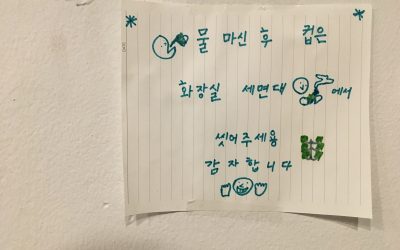 물 마신 후 컵은
화장실 세면대 에서
씻어주세용
감자합니다